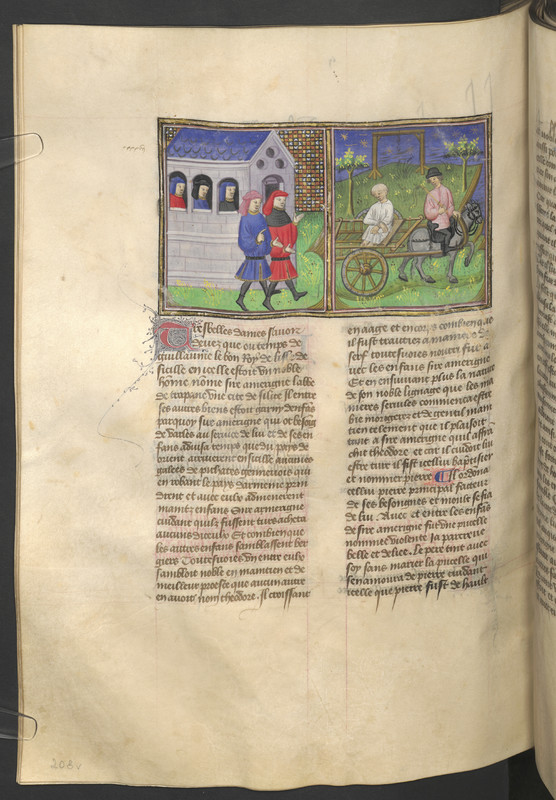 Tresbelles dames savoir
devez que ou temps de
guillaume le bon Roy de lisle de
sicille en icelle estoit vn noble
home nōme sire amerigue labbe
de trapane vne cite de silice Il entre
ses autres biens estoit garny denfās
parquoy sire amerigue qui ot besoing
de varles au seruice de lui et de ses en
fans aduisa temps que du pays de
orient arriuerent en sicille aucunes
galees de pichates genneuois qui
en robant le pays darmenie prin
drent et auec eulx admenerent
maintz enfans Sire armerigue
cuidant quilz fussent turcs acheta
aucuns diceulx Et combien que
les autres enfans samblassent ber
giers Toutesuoies vn entre eulx
sambloit noble en maintien et de
meilleur proesce que aucun autre
en auoit nom theodore. Il croissant
en aage et encores combien que
il fust traictie a maniere de
serf toutesuoies nourri fut a
uec les enfans sire amerigue
Et en ensuiuant plus la nature
de son noble lignage que les ma
nieres seruiles commenca estre
bie morigerez et de gentil main
tien tellement que il plaisoit
tant a sire amerigue quil affra
chit theodore et car il cuidoit lui
estre turc il fist icellui baptisier
et nommer pierre Il ordōna
cellui pierre principal facteur
de ses besongnes et moult se fia
de lui. Auec et entre les enfās
de sire amerigue fut vne pucelle
nommee violente Ia parcreue
belle et delice. Le pere tint auec
soy sans marier la pucelle qui
senamoura de pierre cuidant
icelle que pierre fust de haulte
208v